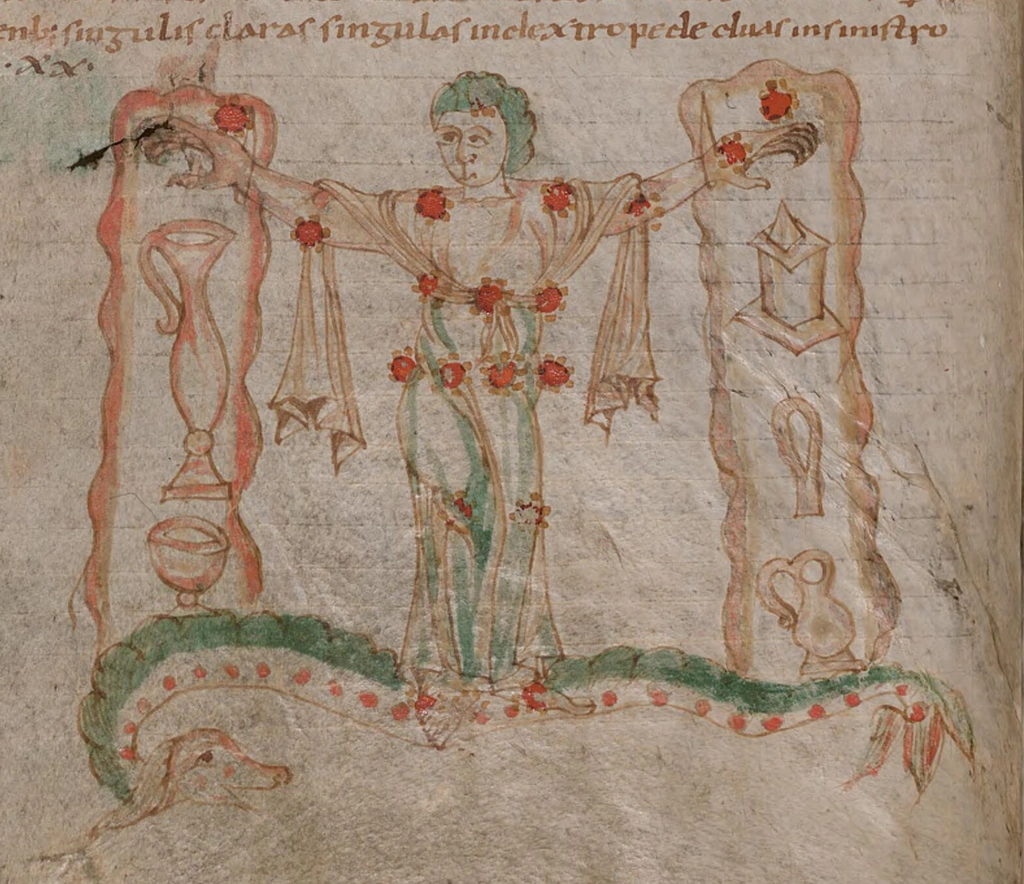 singulis claras singulas in dextro pede duas in sinistro
·xx·